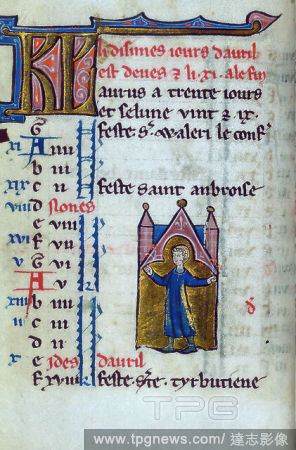 KL
li disimes iours dauril
est deues z li .xi. a le fin
aurus a trente iours
et selune vint z ix.
G
xi A iiii feste st Waleri le conf
b iii
xix c ii feste saint anbroise
viii d nones
e viii
xvi f vii
v G vi
A v
xiii b
ii c
d
x e ides dauril
f xviii feste ste tyrbutiene
TPG
www.tpgnews.com / 達志影像